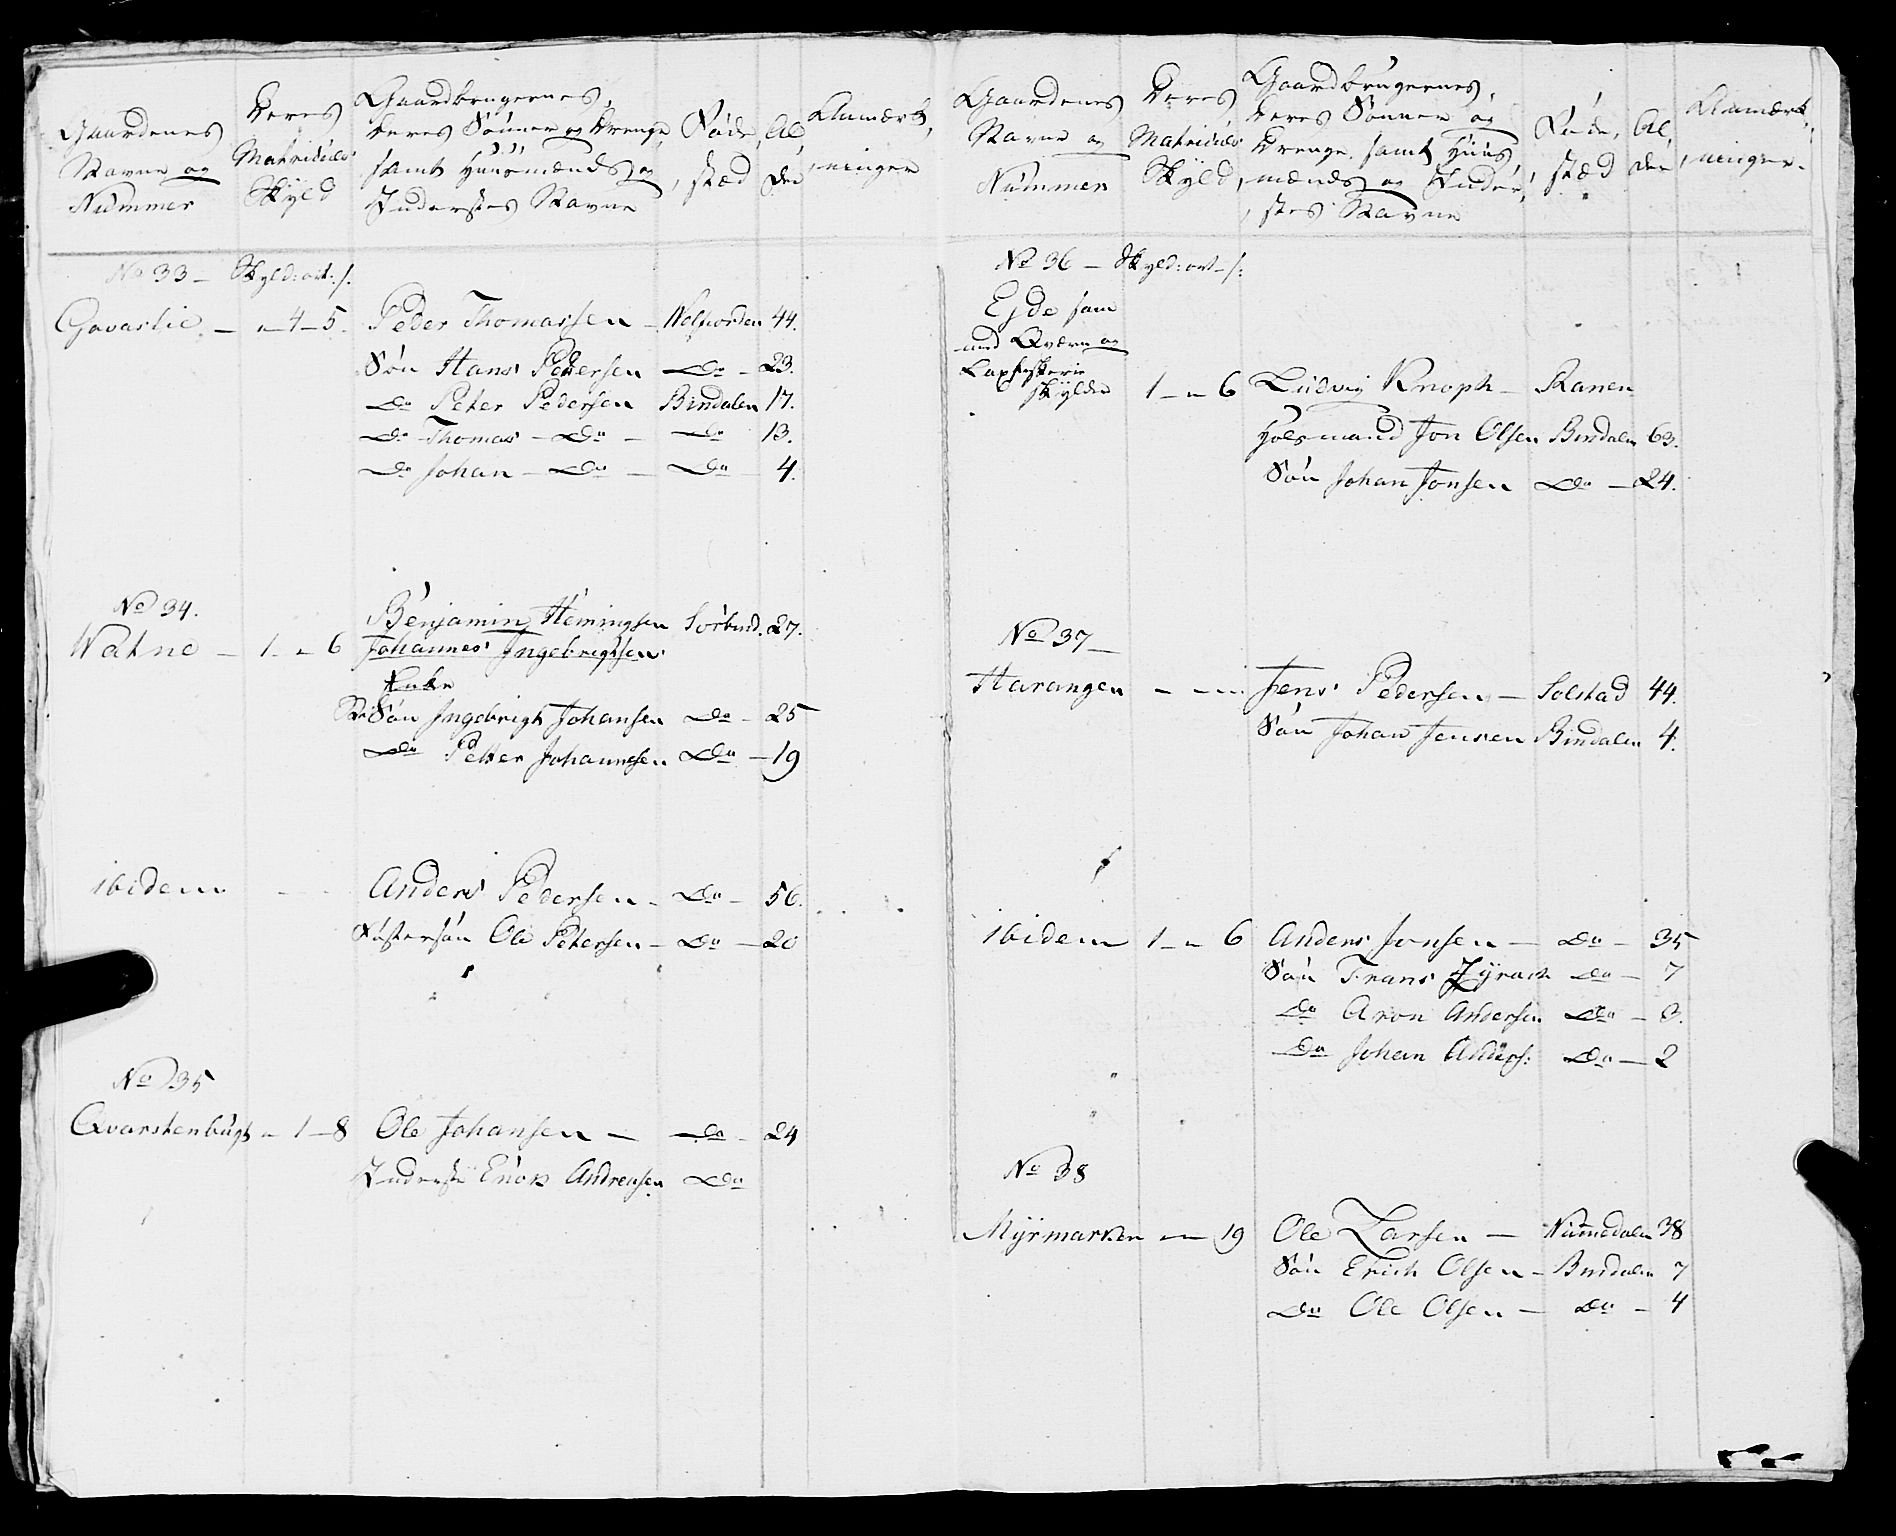 Gaardenes
Navne og
Nummer
Deres
Matriculs
Skyld
Gaardbrugernes,
deres Sønner og Drenge,
samt Huusmænds og
Inderstes Navne
Føde,
stæd
Al
der
Anmærk,
ninger
No 33 – Skyld: ort: s.
Gavaslie – " – 4 – 5. Peder Thomassen – Welfiorden 44.
Søn Hans Pedersen – Do – 23.
Do Peter Pedersen Bindalen 17.
Do Thomas – Do – Do 13.
Do Johan – Do – Do – 4.
No 34.
Benjamin Hemingsen Sørbind. 27.
Watne – 1 – " 6 Johannes Ingebrigtsen
Enke
Søn Ingebrigt Johansen Do – 25
Do Petter Johannesen Do – 19
ibidem Anders Pedersen – Do – 56.
Søstersøn Ole Petersen – Do – 20
No 35
Qvarstenbugt " – 1 – 8 Ole Johansen – Do – 24
Inderste Enok Andreasen Do
Gaardenes
Navne og
Nummer
Deres
Matriculs
Skyld,
Gaardbrugernes,
deres Sønner og
Drenge, samt Huus,
mænds og Inder,
stes Navne
Føde,
stæd
Al
der
Anmærk,
ninger.
No 36 – Skyld: ort – s:
Ejde sam
med Qværn og
Laxfiskerie
skylder 1 – " 6 Ludvig Knoph – Ranen
Huusmand Jon Olsen Bindalen 63.
Søn Johan Jonsen Do – 24.
No 37 –
Harangen – " – " Jens Pedersen – Solstad 44.
Søn Johan Jensen Bindalen 4.
ibidem 1 – " 6 Anders Jonsen – Do – 35
Søn Frans Zyrach Do – 7
Do Aron Andersen Do – 3.
Do Johan Anders: Do – 2
No 38
Myrmarken " – " 19 Ole Larsen – Nummedalen 38
Søn Erich Olsen – Bindalen 7
Do Ole Olsen – Do – 4